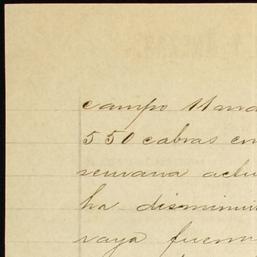 campo
550 cabras en
semana actu
ha disminui
vaya fuem